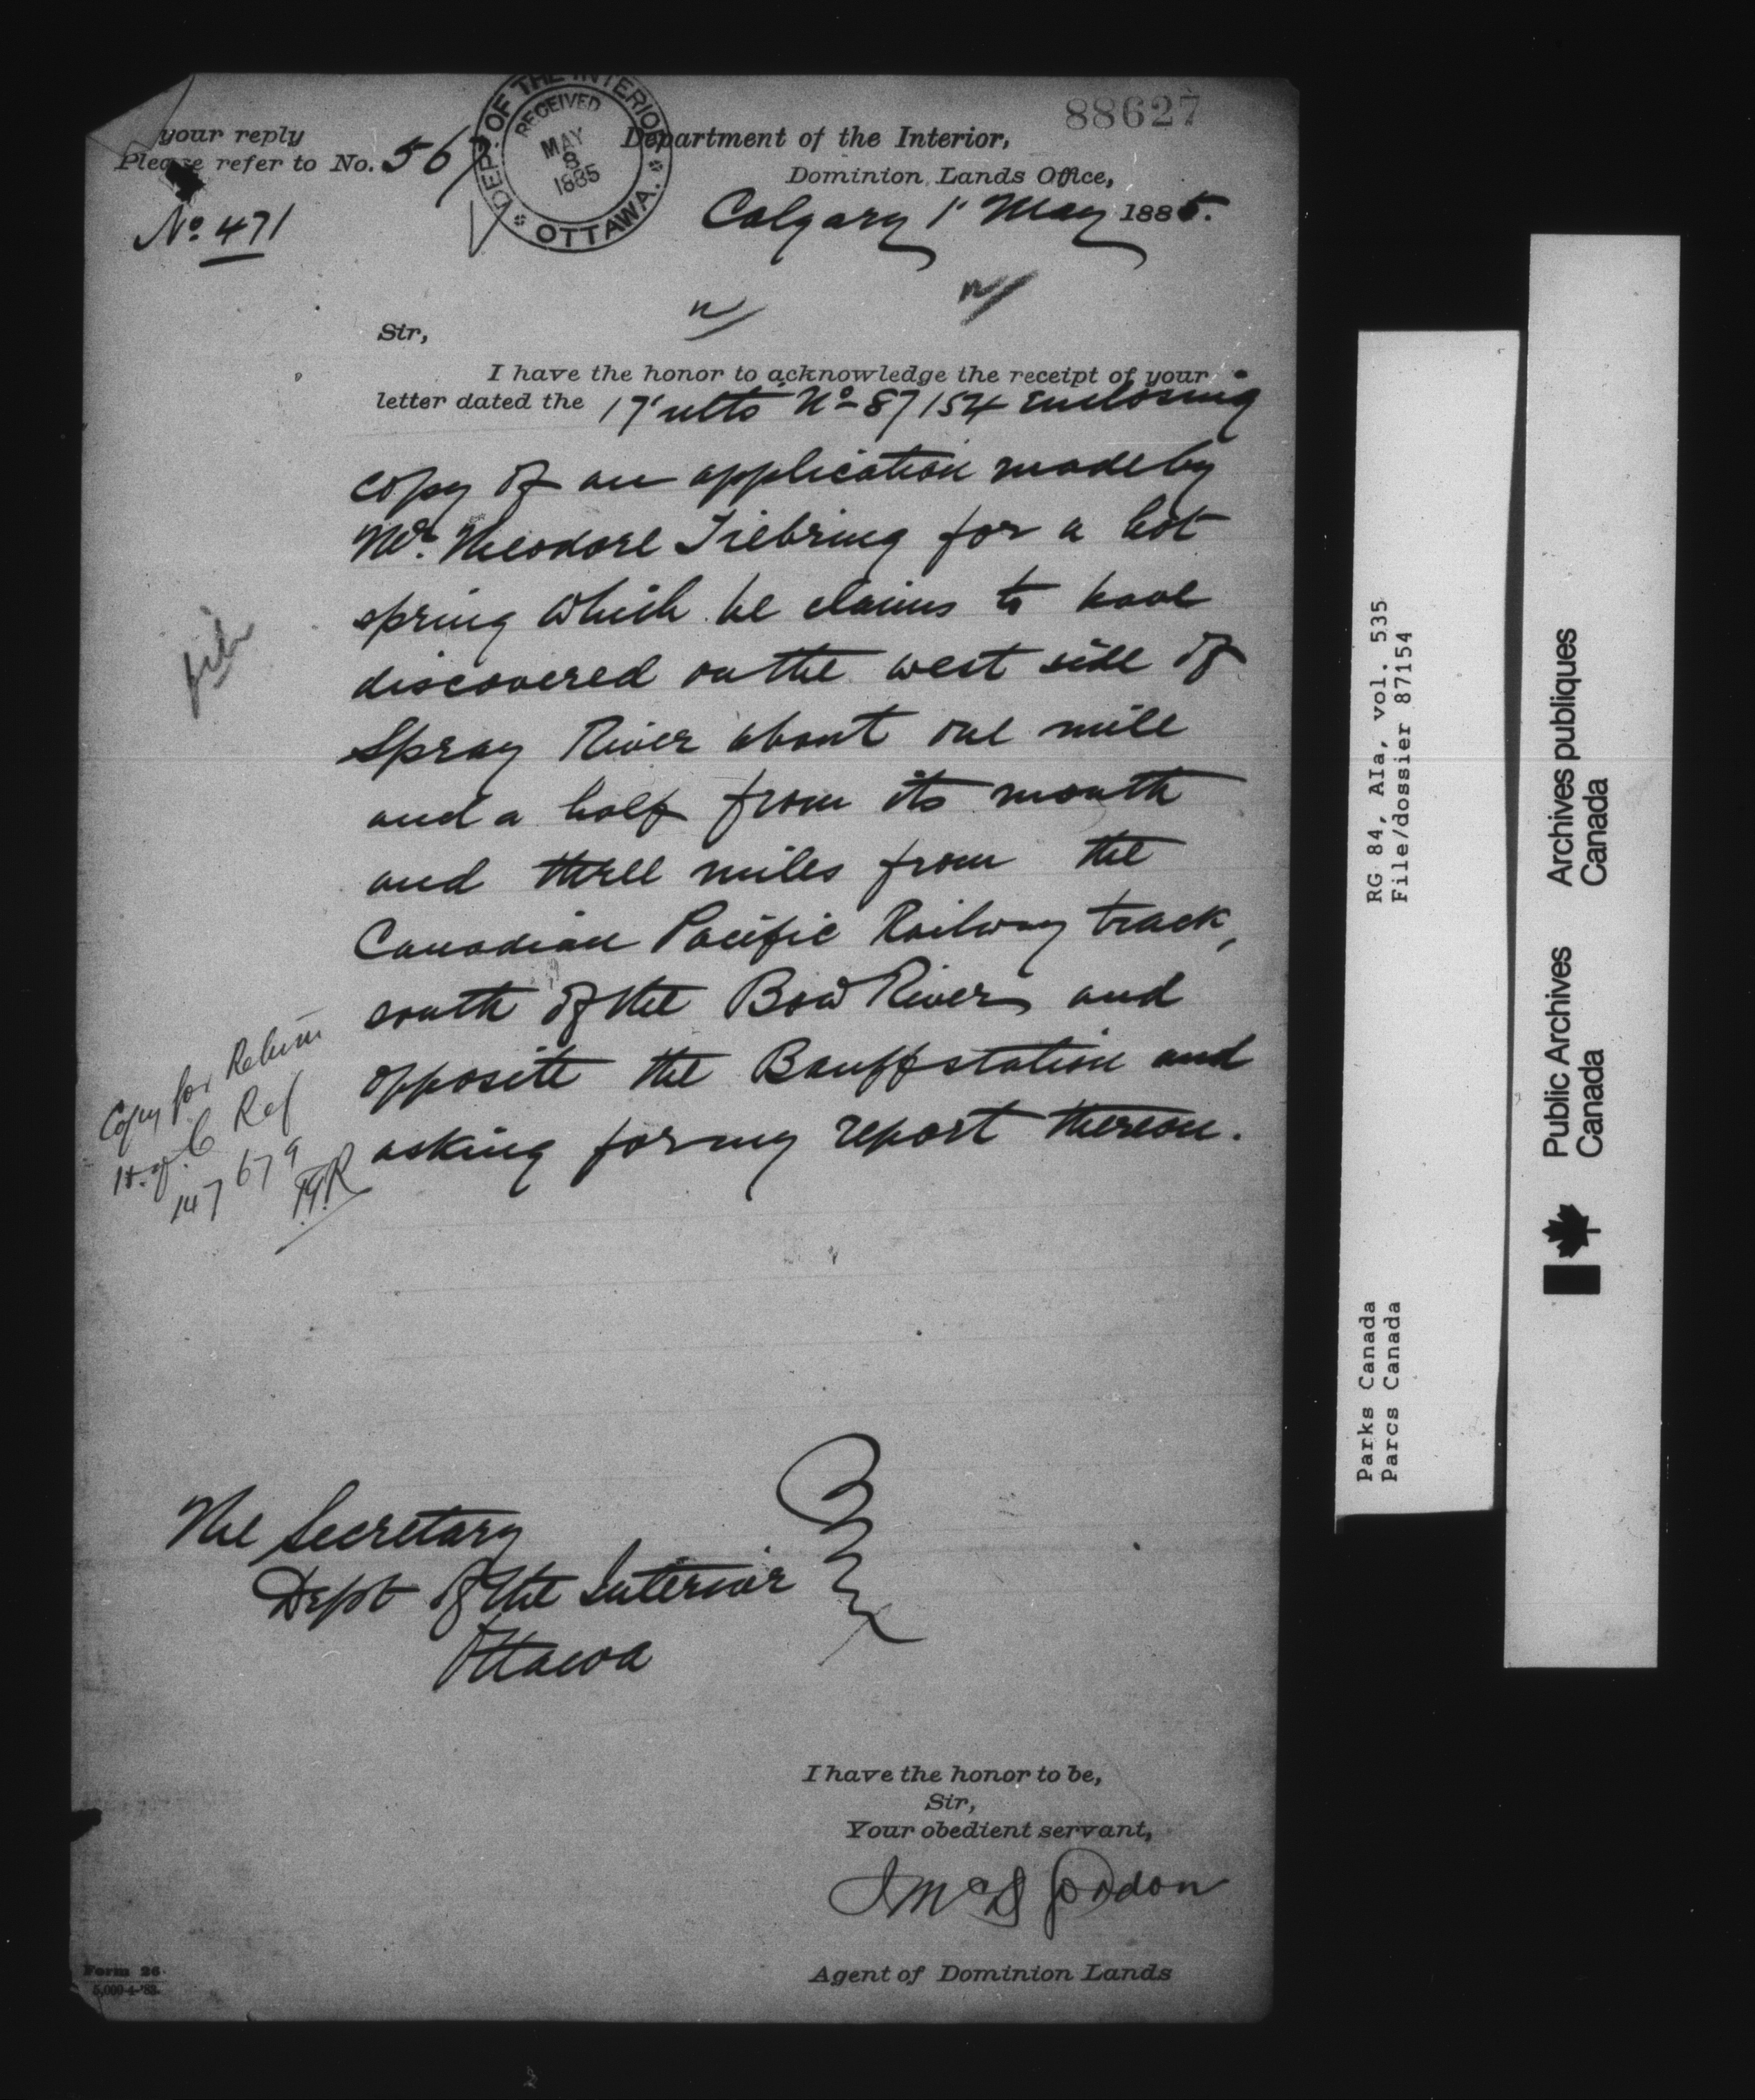 88627
your reply
Please refer to No. 567
No. 471
DEPT. OF THE INTERIOR
RECEIVED
MAY
8
1885
OTTAWA.
Department of the Interior,
Dominion Lands Office,
Calgary 1' May 1885.
Sir,
I have the honor to acknowledge the receipt of your
letter dated the 17' ulto No 87154 enclosing
copy of an application made by
Mr. Theodore Siebring for a hot
spring which he claims to have
discovered on the west side of
Spray River about one mile
and a half from its mouth
and three miles from the
Canadian Pacific Railway track,
south of the Bow River and
opposite the Banff station and
asking for my report thereon.
file
Copy for Return
H. of C Ref
147679
The Secretary
Dept of the Interior
Ottawa
I have the honor to be,
Sir,
Your obedient servant,
J McD Gordon
Agent of Dominion Lands
Form 26.
5,000-4-'83.
RG 84, AIa, vol. 535
File/dossier 87154
Parks Canada
Parcs Canada
Public Archives
Canada
Archives publiques
Canada